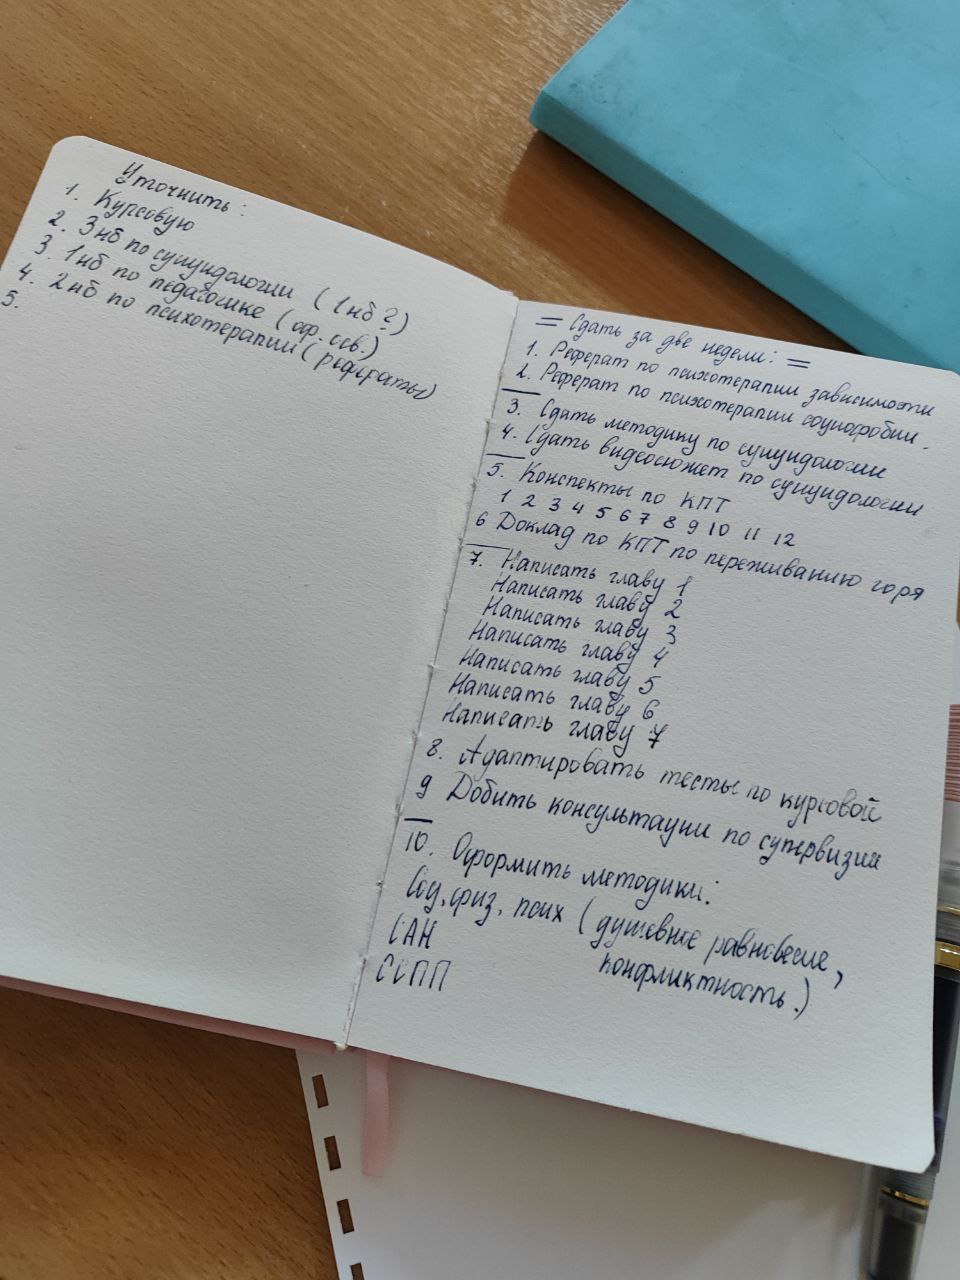 Уточнить:
1. Курсовую
2. 3нб по суицидологии (1нб?)
3. 1нб по педагогике (оф. осв.)
4. 2нб по психотерапии (рефераты)
5.
= Сдать за две недели: =
1. Реферат по психотерапии зависимости
2. Реферат по психотерапии социофобии.
3. Сдать методику по суицидологии
4. Сдать видеосюжет по суицидологии
5. Конспекты по КПТ
1 2 3 4 5 6 7 8 9 10 11 12
6 Доклад по КПТ по переживанию горя
7. Написать главу 1
Написать главу 2
Написать главу 3
Написать главу 4
Написать главу 5
Написать главу 6
Написать главу 7
8. Адаптировать тесты по курсовой
9 Добить консультации по супервизии
10. Оформить методики:
Соц, физ, псих (душевное равновесие,
конфликтность.)
САН
ССПП